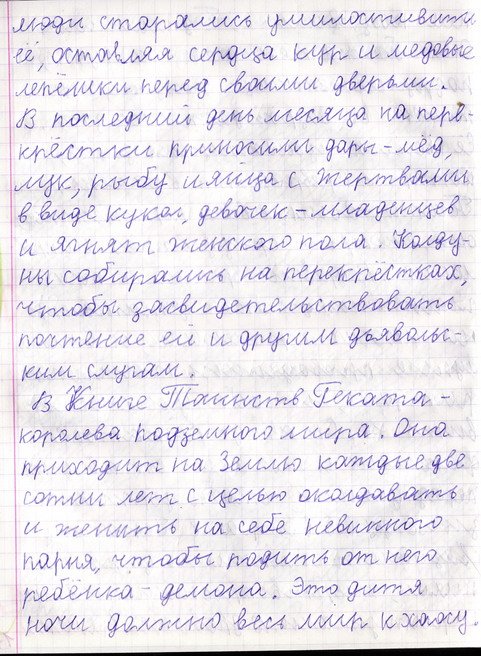 люди старались умилостивити
её, оставляя сердца кур и медовые
лепёшки перед своими дверьми.
В последний день месяца на перε-
крёстки приносили дары - мёд,
лук, рыбу и яйца с жертвами
в виде кукол, девочек - младенцев
и ягнят женского пола. Колду-
ны собирались на перекрёстках,
чтобы засвидетельствовать
почтение ей и другим дьяволь-
ким слугам.
В Книге Таинств Геката -
королева подземного мира. Она
приходит на Землю каждые две
сотни лет с целью околдавать
и женить на себе невинного
парня, чтобы родить от него
ребёнка - демона. Это дитя
ночи должно весь мир к хаосу.